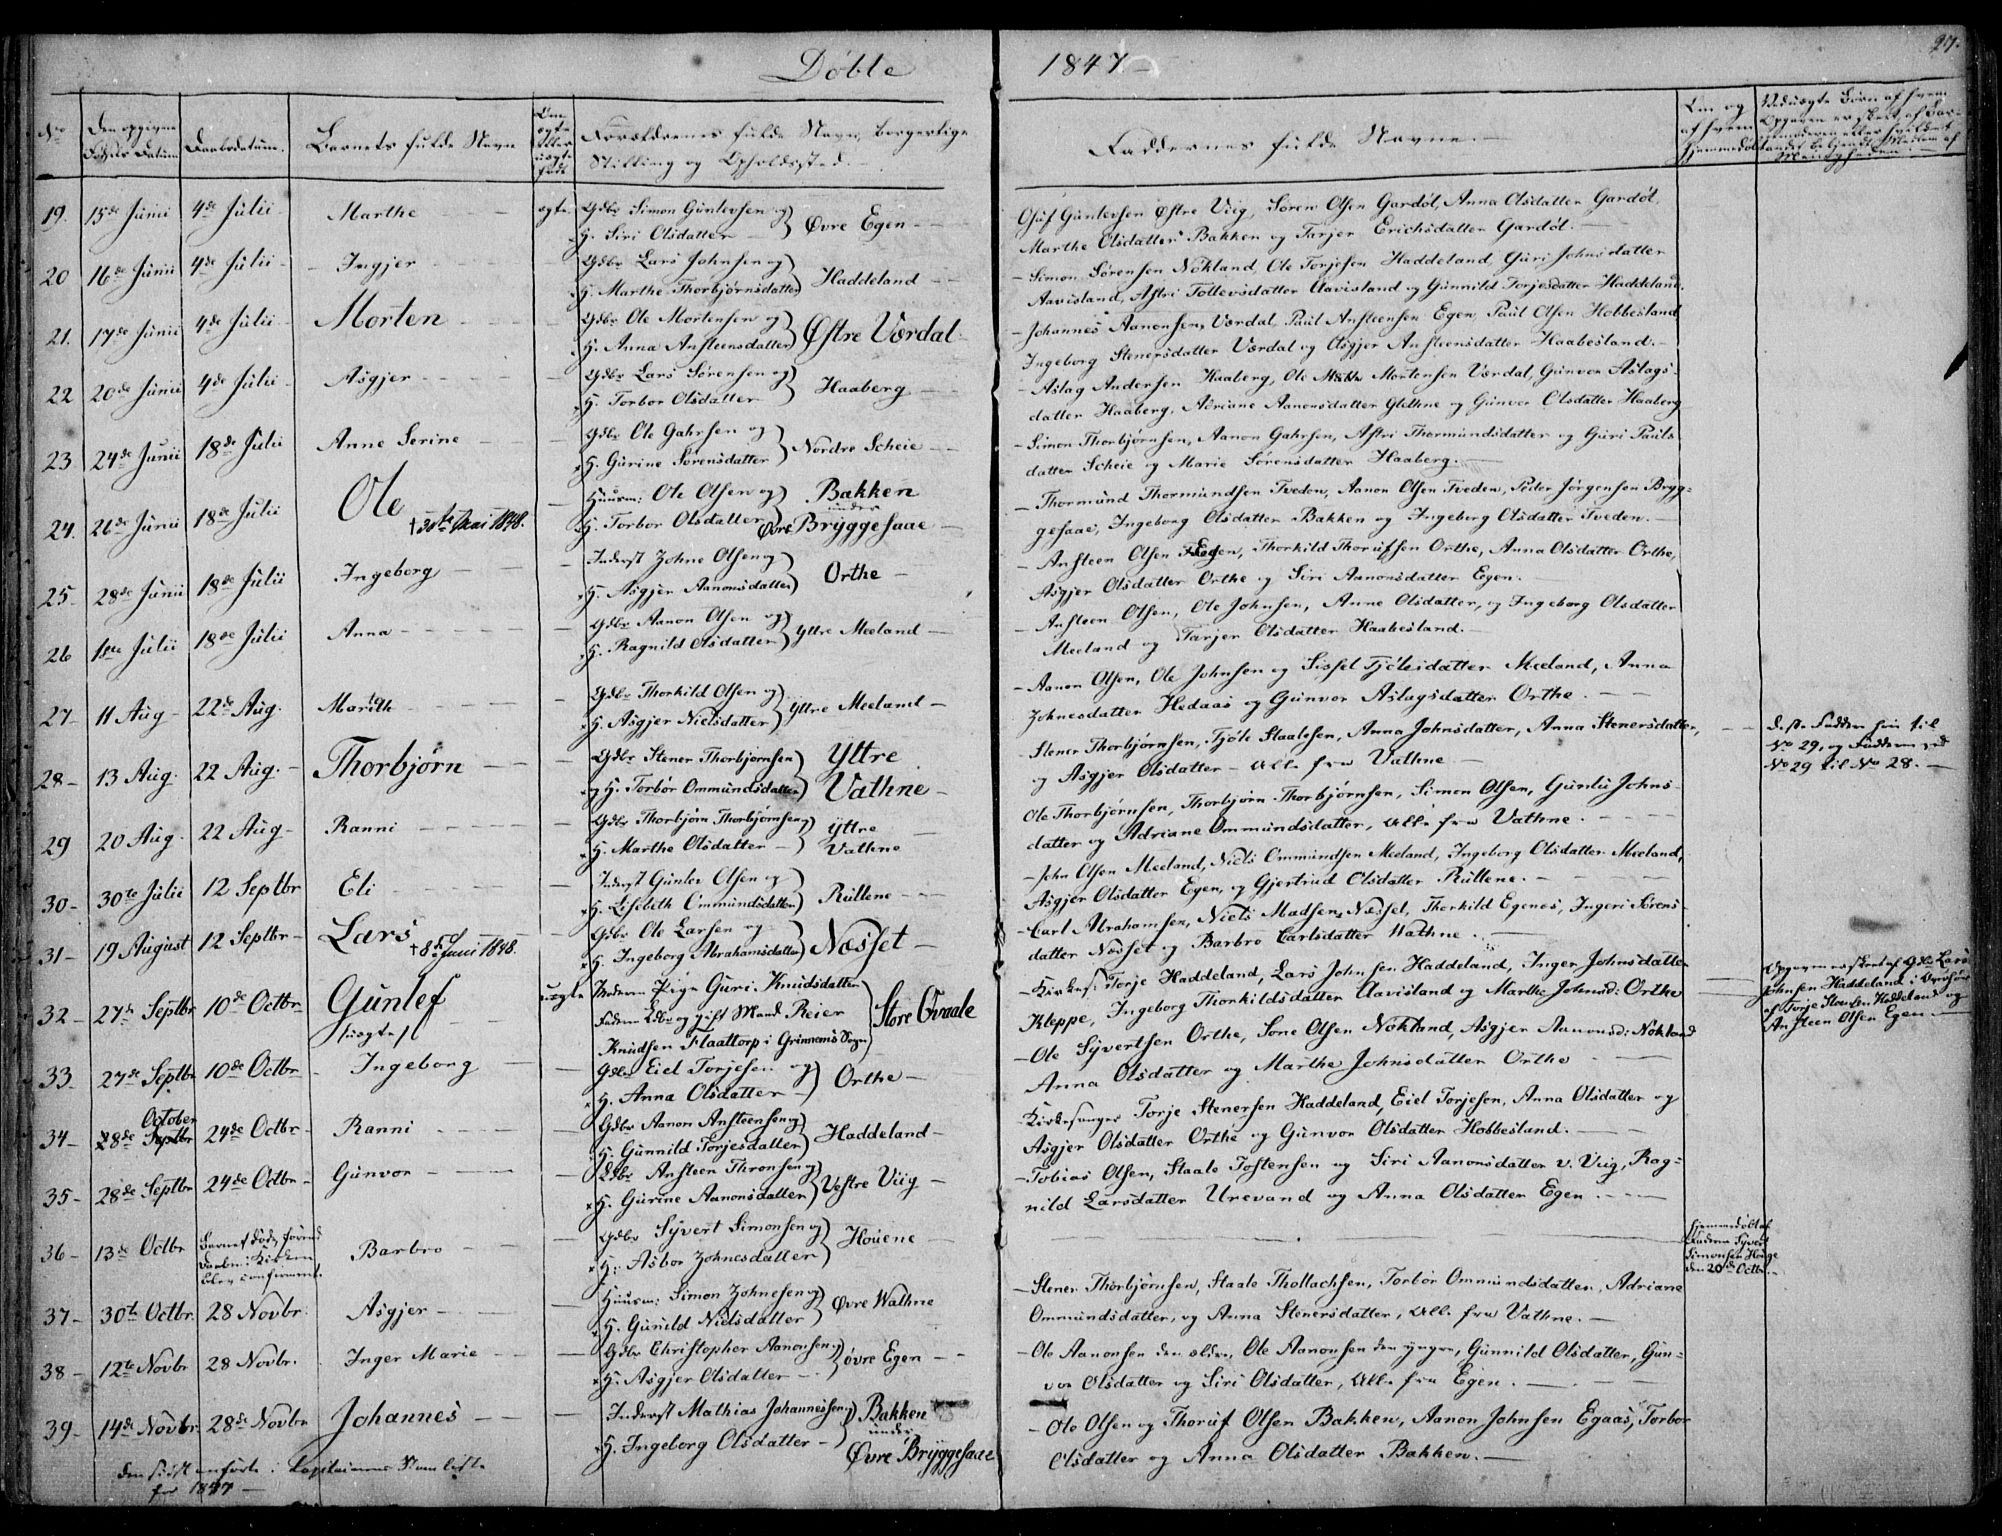 Døbte 1847
27.
No
Den opgivne Fødsels Datum
Daabsdatum.
Barnets fulde Navn
Om ægte eller uægte født
Forældrenes fulde Navn, borgerlige
Stilling og Opholdssted.
Faddernes fulde Navne.
Om og af hvem hjemmedøbt
Uduægte Børn af hvem
19. 15de Junii 4de Julii Marthe ægte Gdbr Simon Gunlevsen og H. Siri Olsdatter Øvre Egen
Gunlevsen Østre Viig, Søren Olsen Gardøl, Anna Olsdatter Gardøl,
Marthe Olsdatter Bakken og Tarjer Erichsdatter Gardøl.
20 16de Junii 4de Julii Ingjer Gdbr Lars Johnsen og H. Marthe Thorbjørnsdatter Haddeland
Simon Sørensen Nøkland, Ole Torjesen Haddeland, Guri Johnsdatter
Aavisland, Astri Tollevsdatter Aavisland og Gunnild Torjesdatter Haddeland.
21. 17de Junii 4de Julii Morten Gdbr Ole Mortensen og H. Anna Ansteensdatter Østre Værdal
Johannes Aanonsen Værdal, Paul Ansteensen Egen, Paul Olsen Hobbesland
Ingeborg Stenersdatter Værdal og Asgjer Ansteensdatter Haabesland.
22 20de Junii 4de Julii Asgjer Gdbr Lars Sørensen og H. Torbor Olsdatter Haaberg
Aslag Andersen Haaberg, Ole Mortensen Værdal, Gunvor Aslags-
datter Haaberg, Adriane Aanonsdatter Glethne og Gunvor Olsdatter Haaberg
23 24de Junii 18de Julii Anne Serine Gdbr Ole Gahrsen og H. Gurine Sørensdatter Nordre Scheie
Simon Thorbjørnsen, Aanon Gahrsen, Astri Thormundsdatter og Guri Pauls
datter Scheie og Marie Sørensdatter Haaberg.
24. 26de Junii 18de Julii Ole † 30te Mai 1848. Huusm: Ole Olsen og H. Torbor Olsdatter Bakken under Øvre Bryggesaae
Thormund Thormundsen Tveden, Aanon Olsen Tveden, Peder Jørgensen Brygg-
gesaae, Ingeborg Olsdatter Bakken og Ingeborg Olsdatter Tveden.
25 28de Junii 18de Julii Ingeborg Inderst Zohne Olsen og H. Asgjer Aanonsdatter Orthe
Ansteen Olsen Egen, Thorkild Thorufsen Orthe, Anna Olsdatter Orthe,
Asgjer Olsdatter Orthe og Siri Aanonsdatter Egen.
26 1ste Julii 18de Julii Anna Gdbr Aanon Olsen og H. Ragnild Olsdatter Yttre Meeland
Ansteen Olsen, Ole Johnsen, Anne Olsdatter, og Ingeborg Olsdatter
Meeland og Tarjer Olsdatter Haabesland.
27 11 Aug 22de Aug. Marith Gdbr Thorkild Olsen og H. Asgjer Nielsdatter Yttre Meeland
Aanon Olsen, Ole Johnsen og Sissel Tjølsdatter Meeland, Anna
Zohnesdatter Hedaas og Gunvor Aslagsdatter Orthe.
28 13 Aug. 22 Aug. Thorbjørn Gdbr Stener Thorbjørnsen og H. Torbor Ommundsdatter Yttre Vathne
Stener Thorbjørnsen, Tjøle Staalesen, Anna Johnsdatter, Anna Stenersdatter,
og Asgjer Olsdatter alle fra Vathne
Disse Faddere hører til
No 29, og Fadderne ved
No 29 til No 28.
29 20 Aug. 22 Aug. Ranni Gdbr Thorbjørn Thorbjørnsen og H. Marthe Olsdatter Yttre Vathne
Ole Thorbjørnsen, Thorbjørn Thorbjørnsen, Simon Olsen, Gunlu Johns-
datter og Adriane Ommundsdatter, alle fra Vathne.
30 30te Julii 12 Septbr Eli Inderst Gunlev Olsen og H. Lisebeth Ommundsdatter Rullene
John Olsen Meeland, Niels Ommundsen Meeland, Ingeborg Olsdatter Meeland,
Asgjer Olsdatter Egen, og Gjertrud Olsdatter Rullene.
31 19 August 12 Septbr Lars † 8de Junii 1848. Gdbr Ole Larsen og H. Ingeborg Abrahamsdatter Næsset
Carl Abrahamsen, Niels Madsen Næsset, Thorkild Egenes, Ingeri Sørens-
datter Næsset og Barbro Carlsdatter Wathne.
32 27de Septbr 10de Octbr Gunlef (uægte) uægte Moderen Pige Guri Knudsdatter
Faderen Gdbr og gift Mand Reier
Knudsen Flaattorp i Grimnems Sogn Store Qvaale
Kirkes: Torje Haddeland, Lars Johnsen Haddeland, Inger Johnsdatter
Kleppe, Ingeborg Thorkildsdatter Aavisland og Marthe Johnsd: Orthe
Opgaven er skeet af Gdbr Lars
Johnsen Haddeland i Overhør
af Torje Stenersen Haddeland og
Ansteen Olsen Egen.
33 27de Septbr 10de Octbr Ingeborg Gdbr Eiel Torjesen og H. Anna Olsdatter Orthe
Ole Syvertsen Orthe, Sone Olsen Nøkland, Asgjer Aanonsd: Nøkland
Anna Olsdatter og Marthe Johnsdatter Orthe
34 28de October Septbr 24de Octbr Ranni Gdbr Aanon Ansteensen og H. Gunnild Torjesdatter Haddeland
Kirkesanger Torje Stenersen Haddeland, Eiel Torjesen, Anna Olsdatter og
Asgjer Olsdatter Orthe og Gunvor Olsdatter Hobbesland.
35 28de Septbr 24de Octbr Gunvor Gdbr Ansteen Thronsen og H. Gurine Aanonsdatter Vestre Viig
Tobias Olsen, Staale Tostensen og Siri Aanonsdatter V. Viig, Rag-
nild Larsdatter Urevand og Anna Olsdatter Egen.
36 13de Octbr Barnet døde førend Daaben i Kirken blev confirmeret. Barbro Gdbr Syvert Simonsen og H. Asbor Zohnesdatter Houene
Hjemmedøbt af
Faderen Syvert
Simonsen Houge
den 20de Octbr.
37 30te Octbr. 28 Novbr. Asgjer Huusm: Simon Zohnesen og H. Gunild Nielsdatter Øvre Wathne
Stener Thorbjørnsen, Staale Thollachsen, Torbor Ommundsdatter, Adriane
Ommundsdatter, og Anna Stenersdatter, alle fra Vathne.
38 12te Novbr 28 Novbr. Inger Marie Gdbr Christopher Aanonsen og H. Asgjer Olsdatter øvre Egen
Ole Aanonsen den ældre, Ole Aanonsen den yngre, Gunnild Olsdatter, Gun-
vor Olsdatter og Siri Olsdatter, alle fra Egen.
39 14de Novbr 28de Novbr Johannes Inderst Mathias Johannessen og H. Ingeborg Olsdatter Bakken under Øvre Bryggesaae
Ole Olsen og Thoruf Olsen Bakken, Aanon Johnsen Egaas, Torbor
Olsdatter og Anna Olsdatter Bakken.
den sidst anførte i Capitainens Stamliste
for 1847